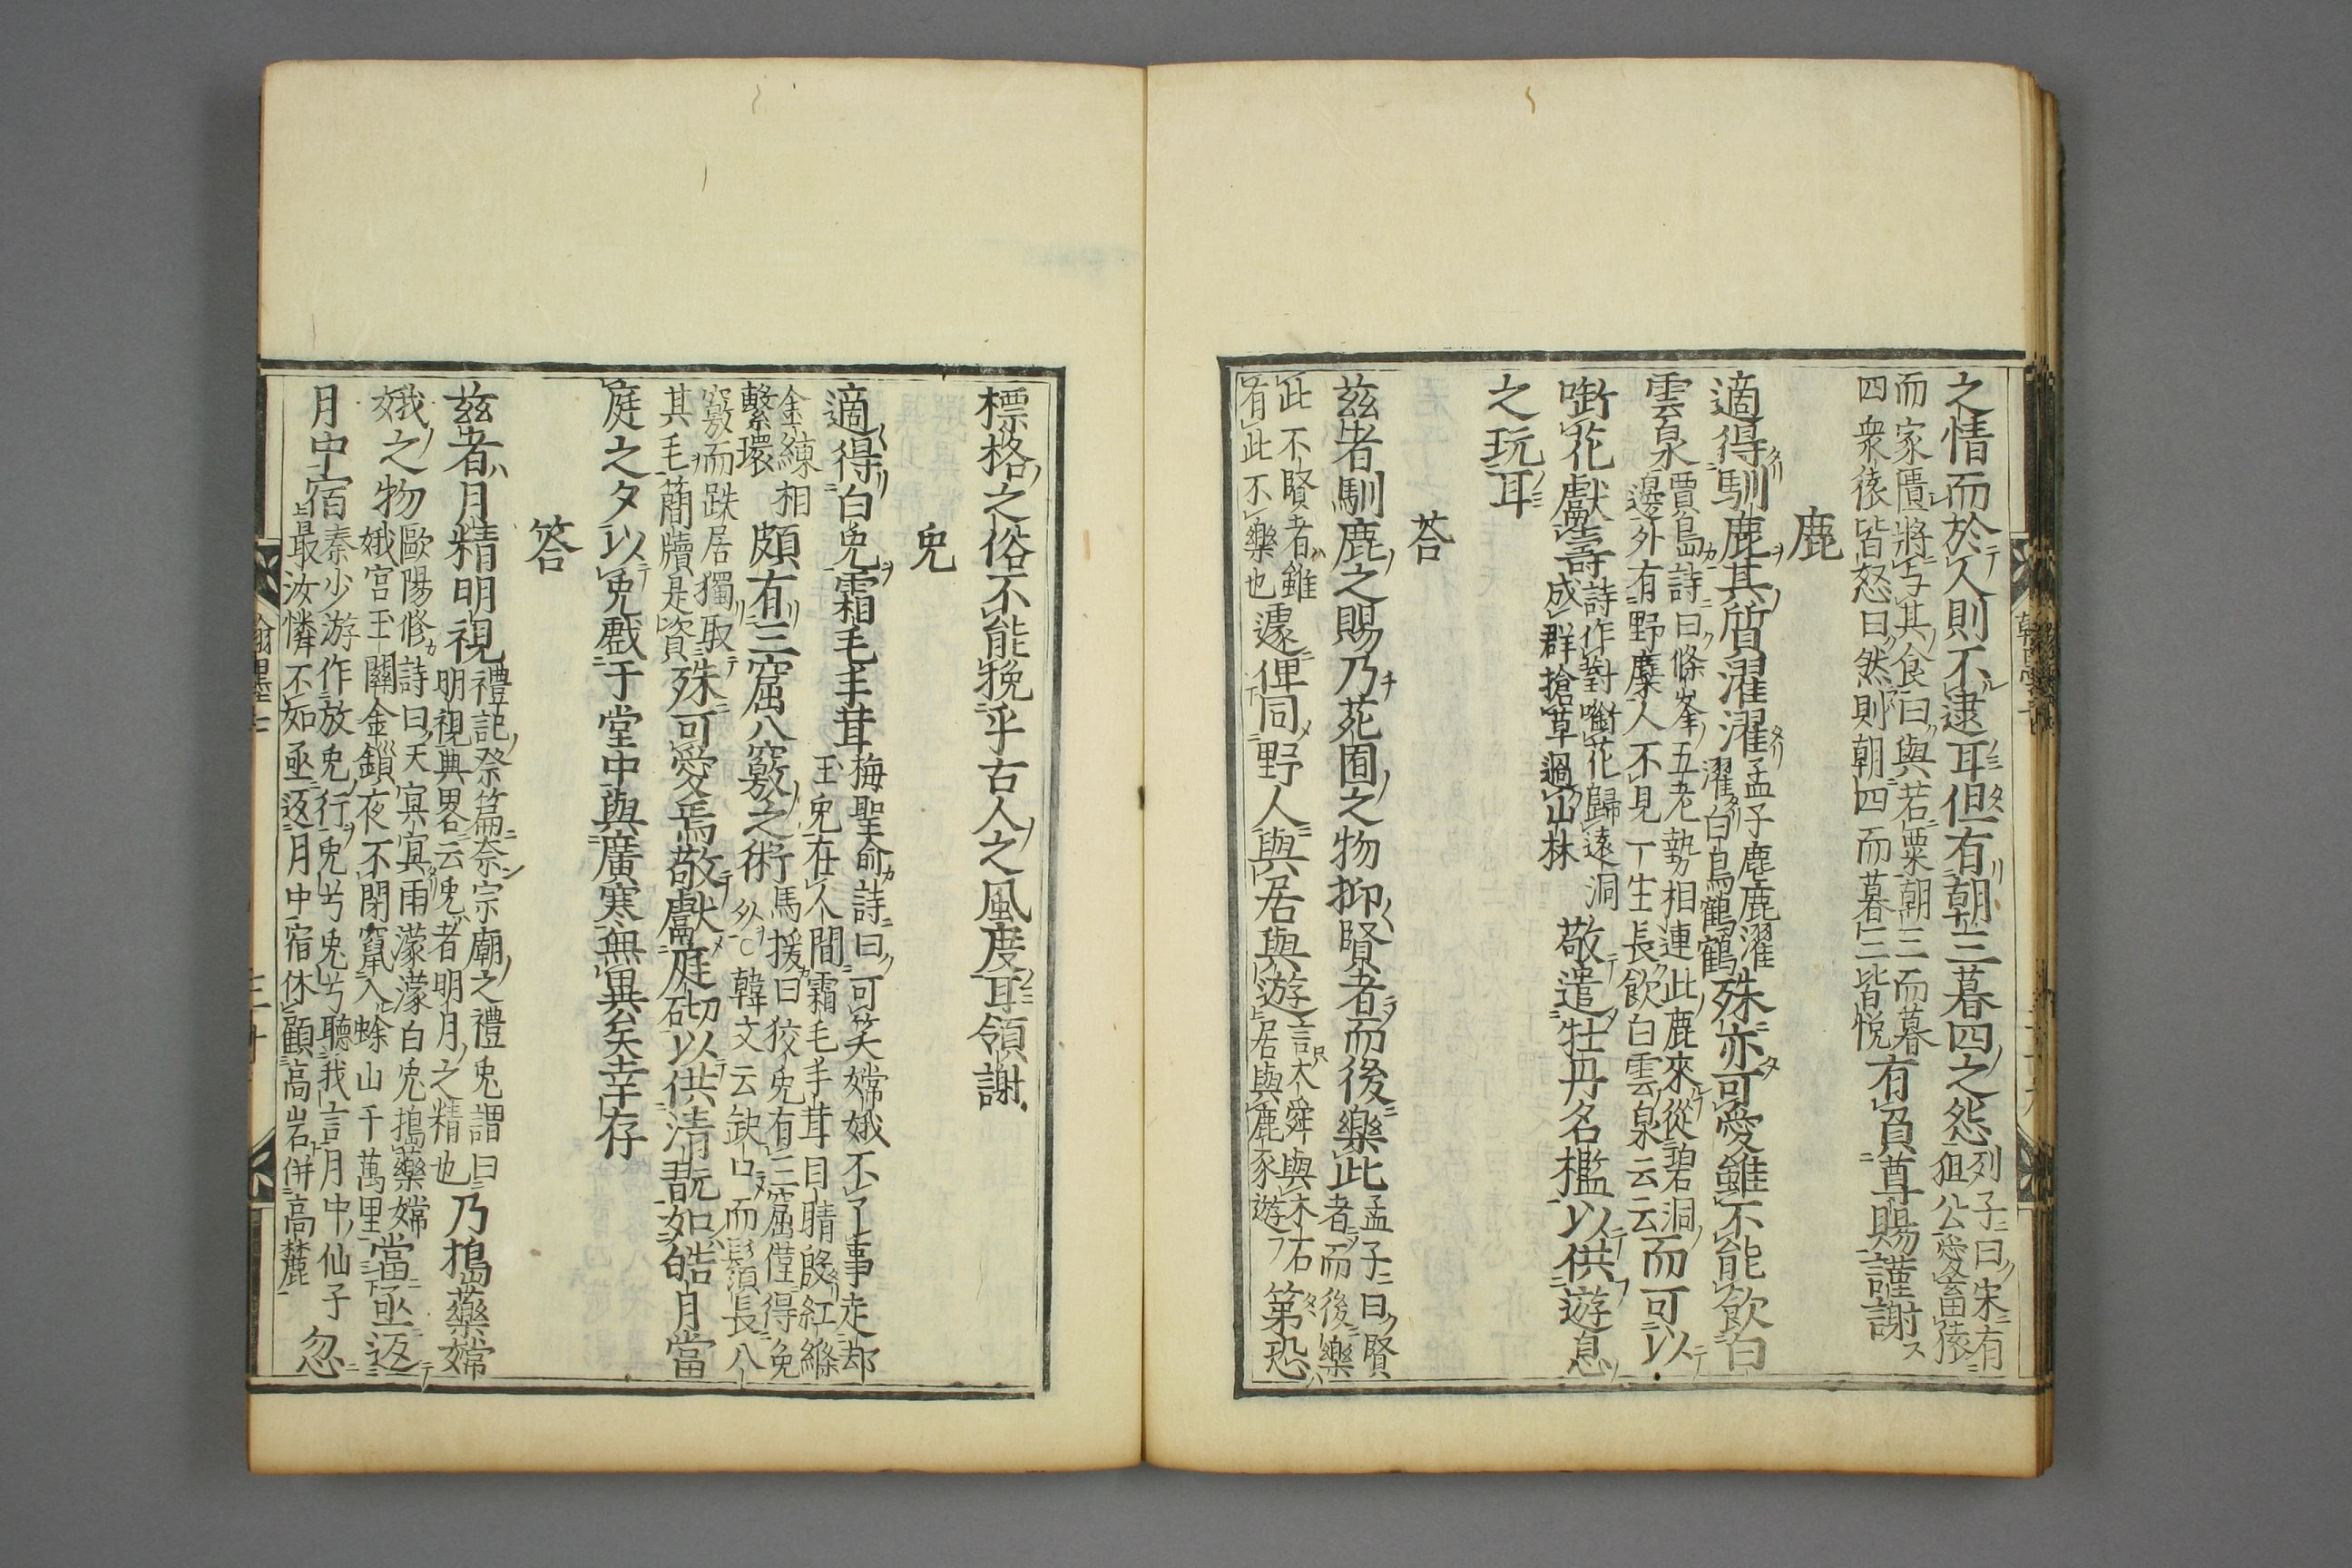 之情而於人則不逮耳但有朝三暮四之怨列子曰宋有狙公愛畜猿
而家匱將与其食曰與若粟朝三而暮四衆猿皆怒曰然則朝四而暮三皆悦有負尊賜謹謝
鹿
適得馴鹿其質濯濯孟子麀鹿濯濯白鳥鶴鶴殊亦可愛雖不能飲白
雲泉賈島詩曰條峯五老勢相連此鹿來從碧洞邊外有野麋人不見一生長飲白雲泉云云而可以
啣花獻壽詩作對啣花歸遠洞成群搶草過山林敬遣牡丹名檻以供遊息
之玩耳
荅
茲者馴鹿之賜乃苑囿之物抑賢者而後樂此孟子曰賢者而後樂
此不賢者雖有此不樂也遽俾同野人與居與遊言大舜與木石居與鹿豕遊第恐
標格之俗不能挽乎古人之風度耳領謝
兎
適得白兎霜毛丰茸梅聖俞詩曰可笑嫦娥不了事走却玉兎在人間霜毛丰茸目睛殷紅絛
金練相繫環頗有三窟八竅之術馬援曰狡兎有三窟僅得免死〇韓文云缺口而長鬚八
竅而趺居獨取其毛簡牘是資殊可愛焉敬獻庭砌以供清翫如皓月當
庭之夕以兎戲于堂中與廣寒無異矣幸存
答
茲者月精明視禮記祭篇奈宗廟之禮兎謂曰明視典畧云兎者明月之精也乃搗藥嫦
娥之物歐陽修詩曰天寞寞雨濛濛白兎搗藥嫦娥宮玉關金鎖夜不閉竄入蜍山千萬里當亟返
月中宿秦少游作放兎行兎兮兎兮聽我言月中仙子最汝憐不如亟返月中宿休顧高岩併高麓忽